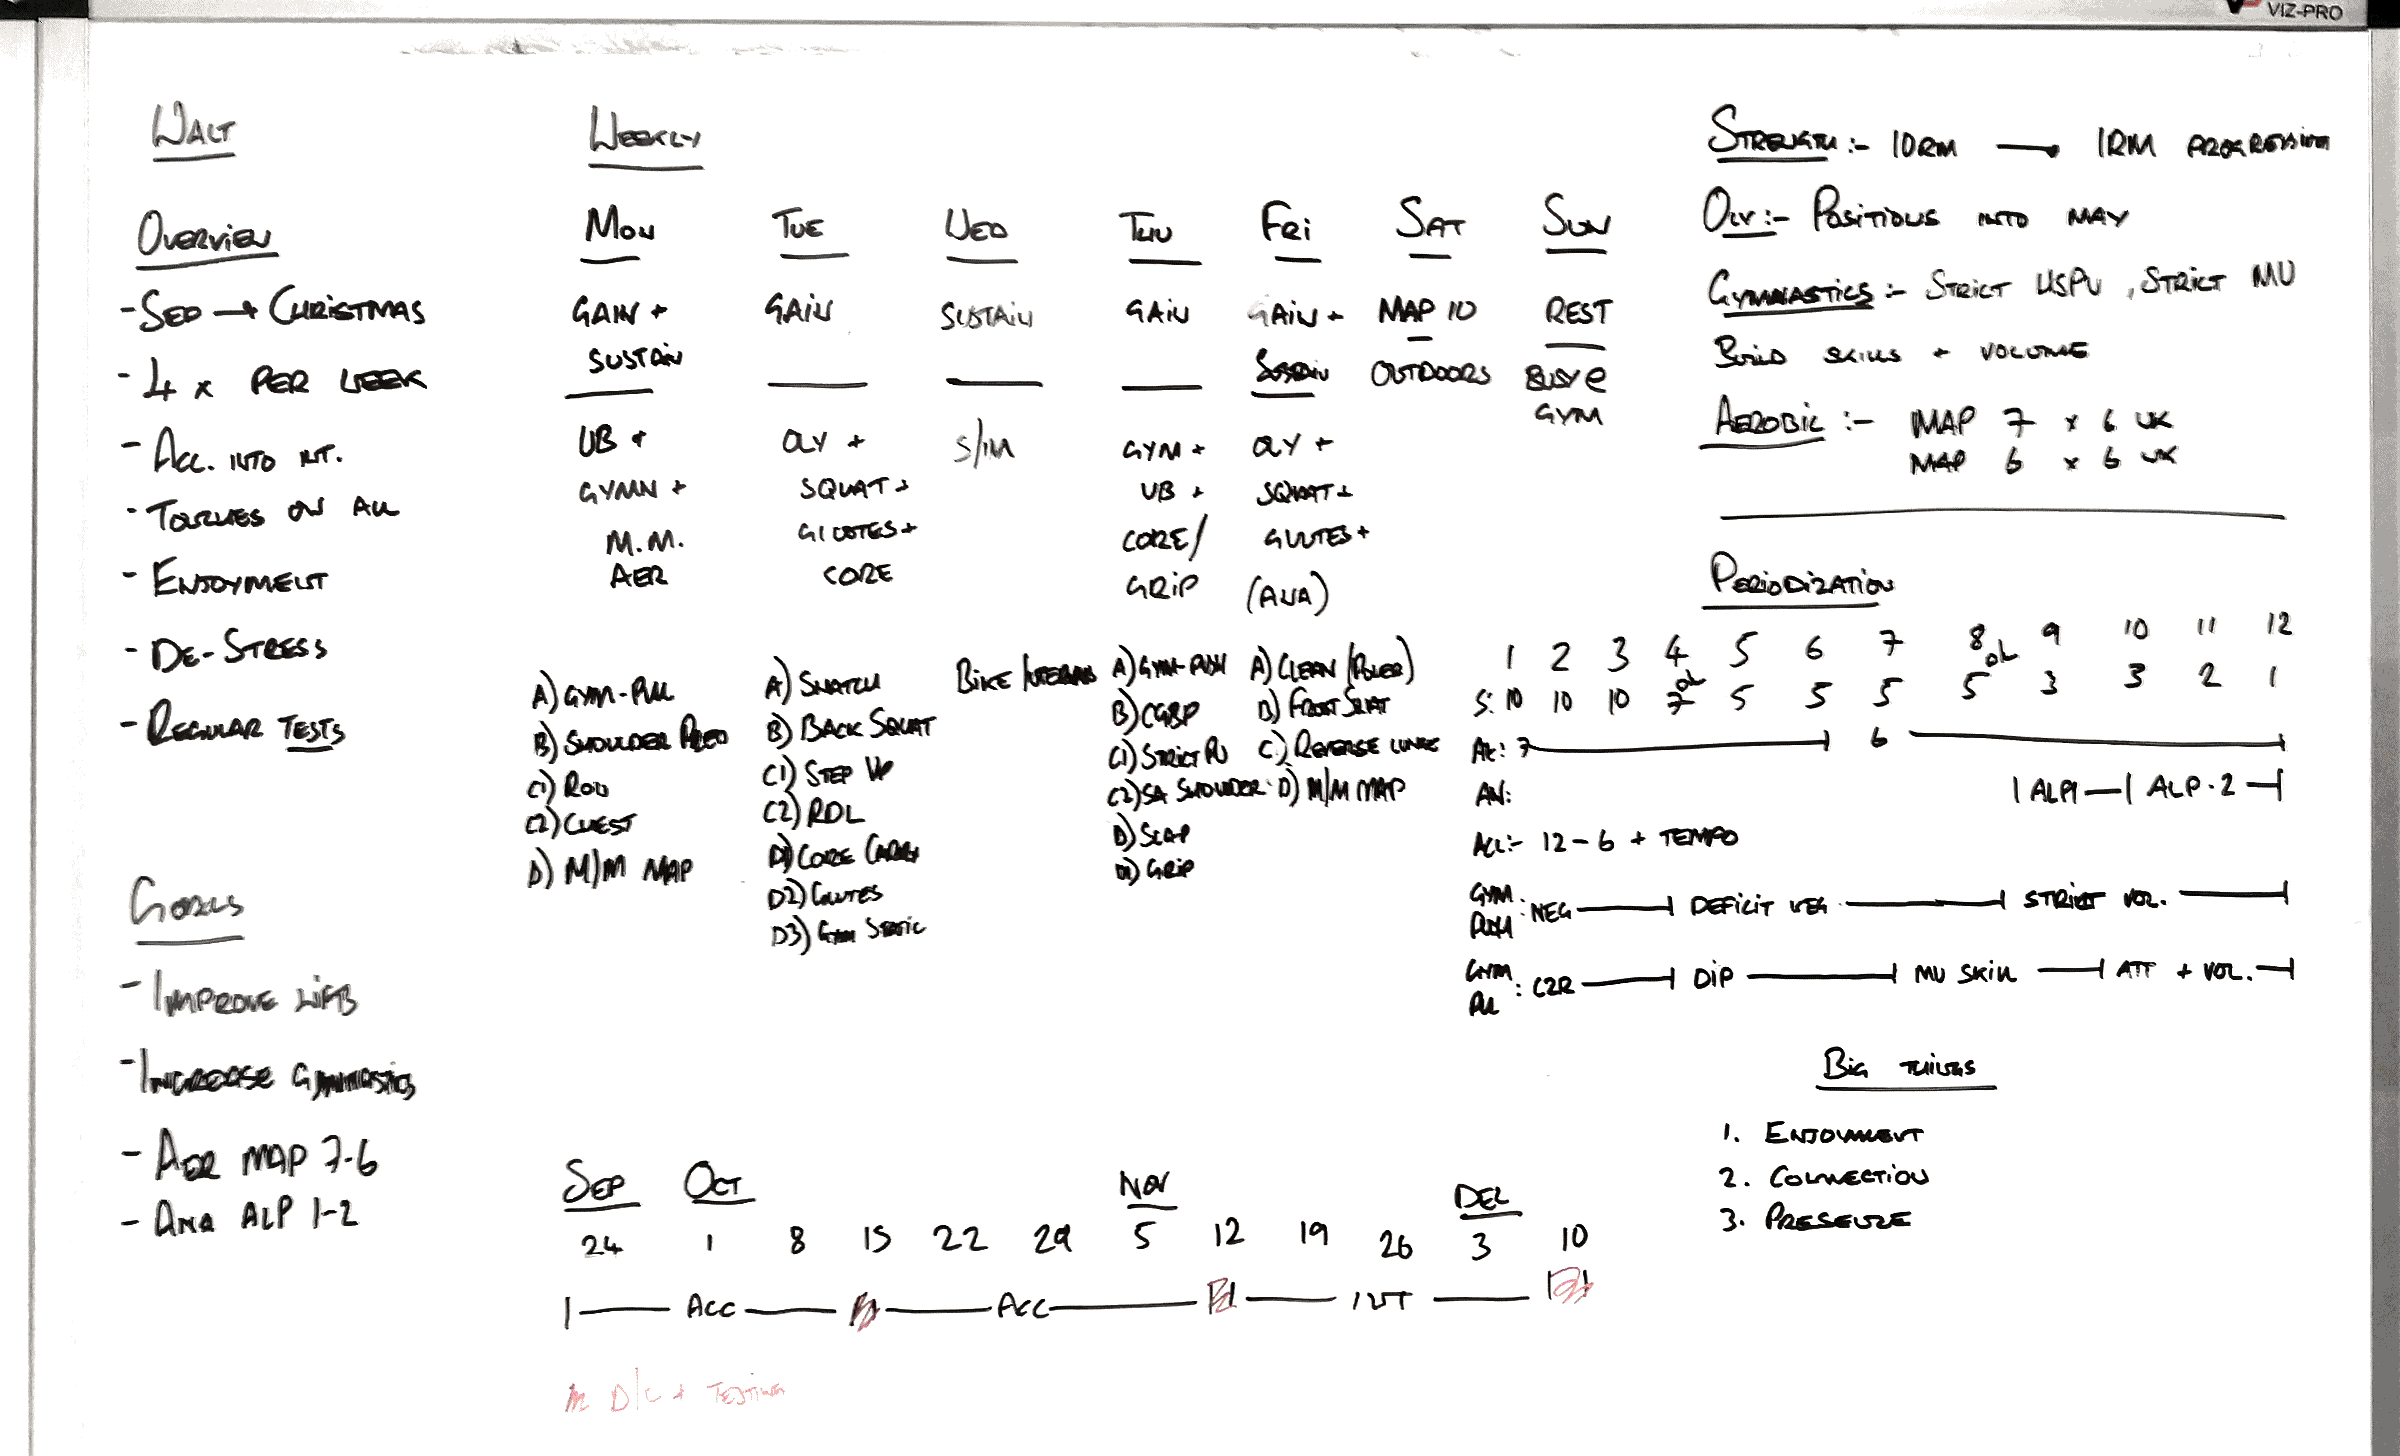 VIZ-PRO
WALT
OVERVIEW
- SEP → CHRISTMAS
- 4 x PER WEEK
- ACC. INTO INT.
- TOUCHES ON ALL
- ENJOYMENT
- DE-STRESS
- REGULAR TESTS
GOALS
- IMPROVE LIFTS
- INCREASE GYMNASTICS
- AER MAP 7-6
- ANA ALP 1-2
WEEKLY
MON
GAIN +
SUSTAIN
UB +
GYMN +
M.M.
AER
A) GYM-PULL
B) SHOULDER PRED
C1) ROW
C2) CHEST
D) M/M MAP
TUE
GAIN
OLY +
SQUAT +
GLUTES +
CORE
A) SNATCH
B) BACK SQUAT
C1) STEP UP
C2) RDL
D1) CORE CARRY
D2) GLUTES
D3) GYM STATIC
WED
SUSTAIN
S/IM
BIKE /
THU
GAIN
GYM +
UB +
CORE/
GRIP
A) GYM-PUSH
B) CGBP
C1) STRICT PU
C2) SA SHOULDER
D) SCAP
D1) GRIP
FRI
GAIN +
SUSTAIN
OLY +
SQUAT +
GLUTES +
(ANA)
A) CLEAN (POWER)
B) FRONT SQUAT
C) REVERSE LUNGE
D) M/M MAP
SAT
MAP 10
OUTDOORS
SUN
REST
BUSY @
GYM
STRENGTH :- 10RM → 1RM PROGRESSION
OLY :- POSITIONS INTO MAY
GYMNASTICS :- STRICT HSPU, STRICT MU
BUILD SKILLS + VOLUME
AEROBIC :- MAP 7 x 6 WK
MAP 6 x 6 WK
PERIODIZATION
1 2 3 4 5 6 7 8 9 10 11 12
DL DL
S: 10 10 10 7 5 5 5 5 3 3 2 1
AE: 7 6
AN: ALP1 ALP-2
ACC:- 12-6 + TEMPO
GYM
PUSH : NEG DEFICIT NEG STRICT VOL.
GYM
PULL : C2R DIP MU SKILL ATT + VOL.
BIG THINGS
1. ENJOYMENT
2. CONNECTION
3. PRESENCE
SEP OCT NOV DEC
24 1 8 15 22 29 5 12 19 26 3 10
ACC ACC INT
D/L + TESTING